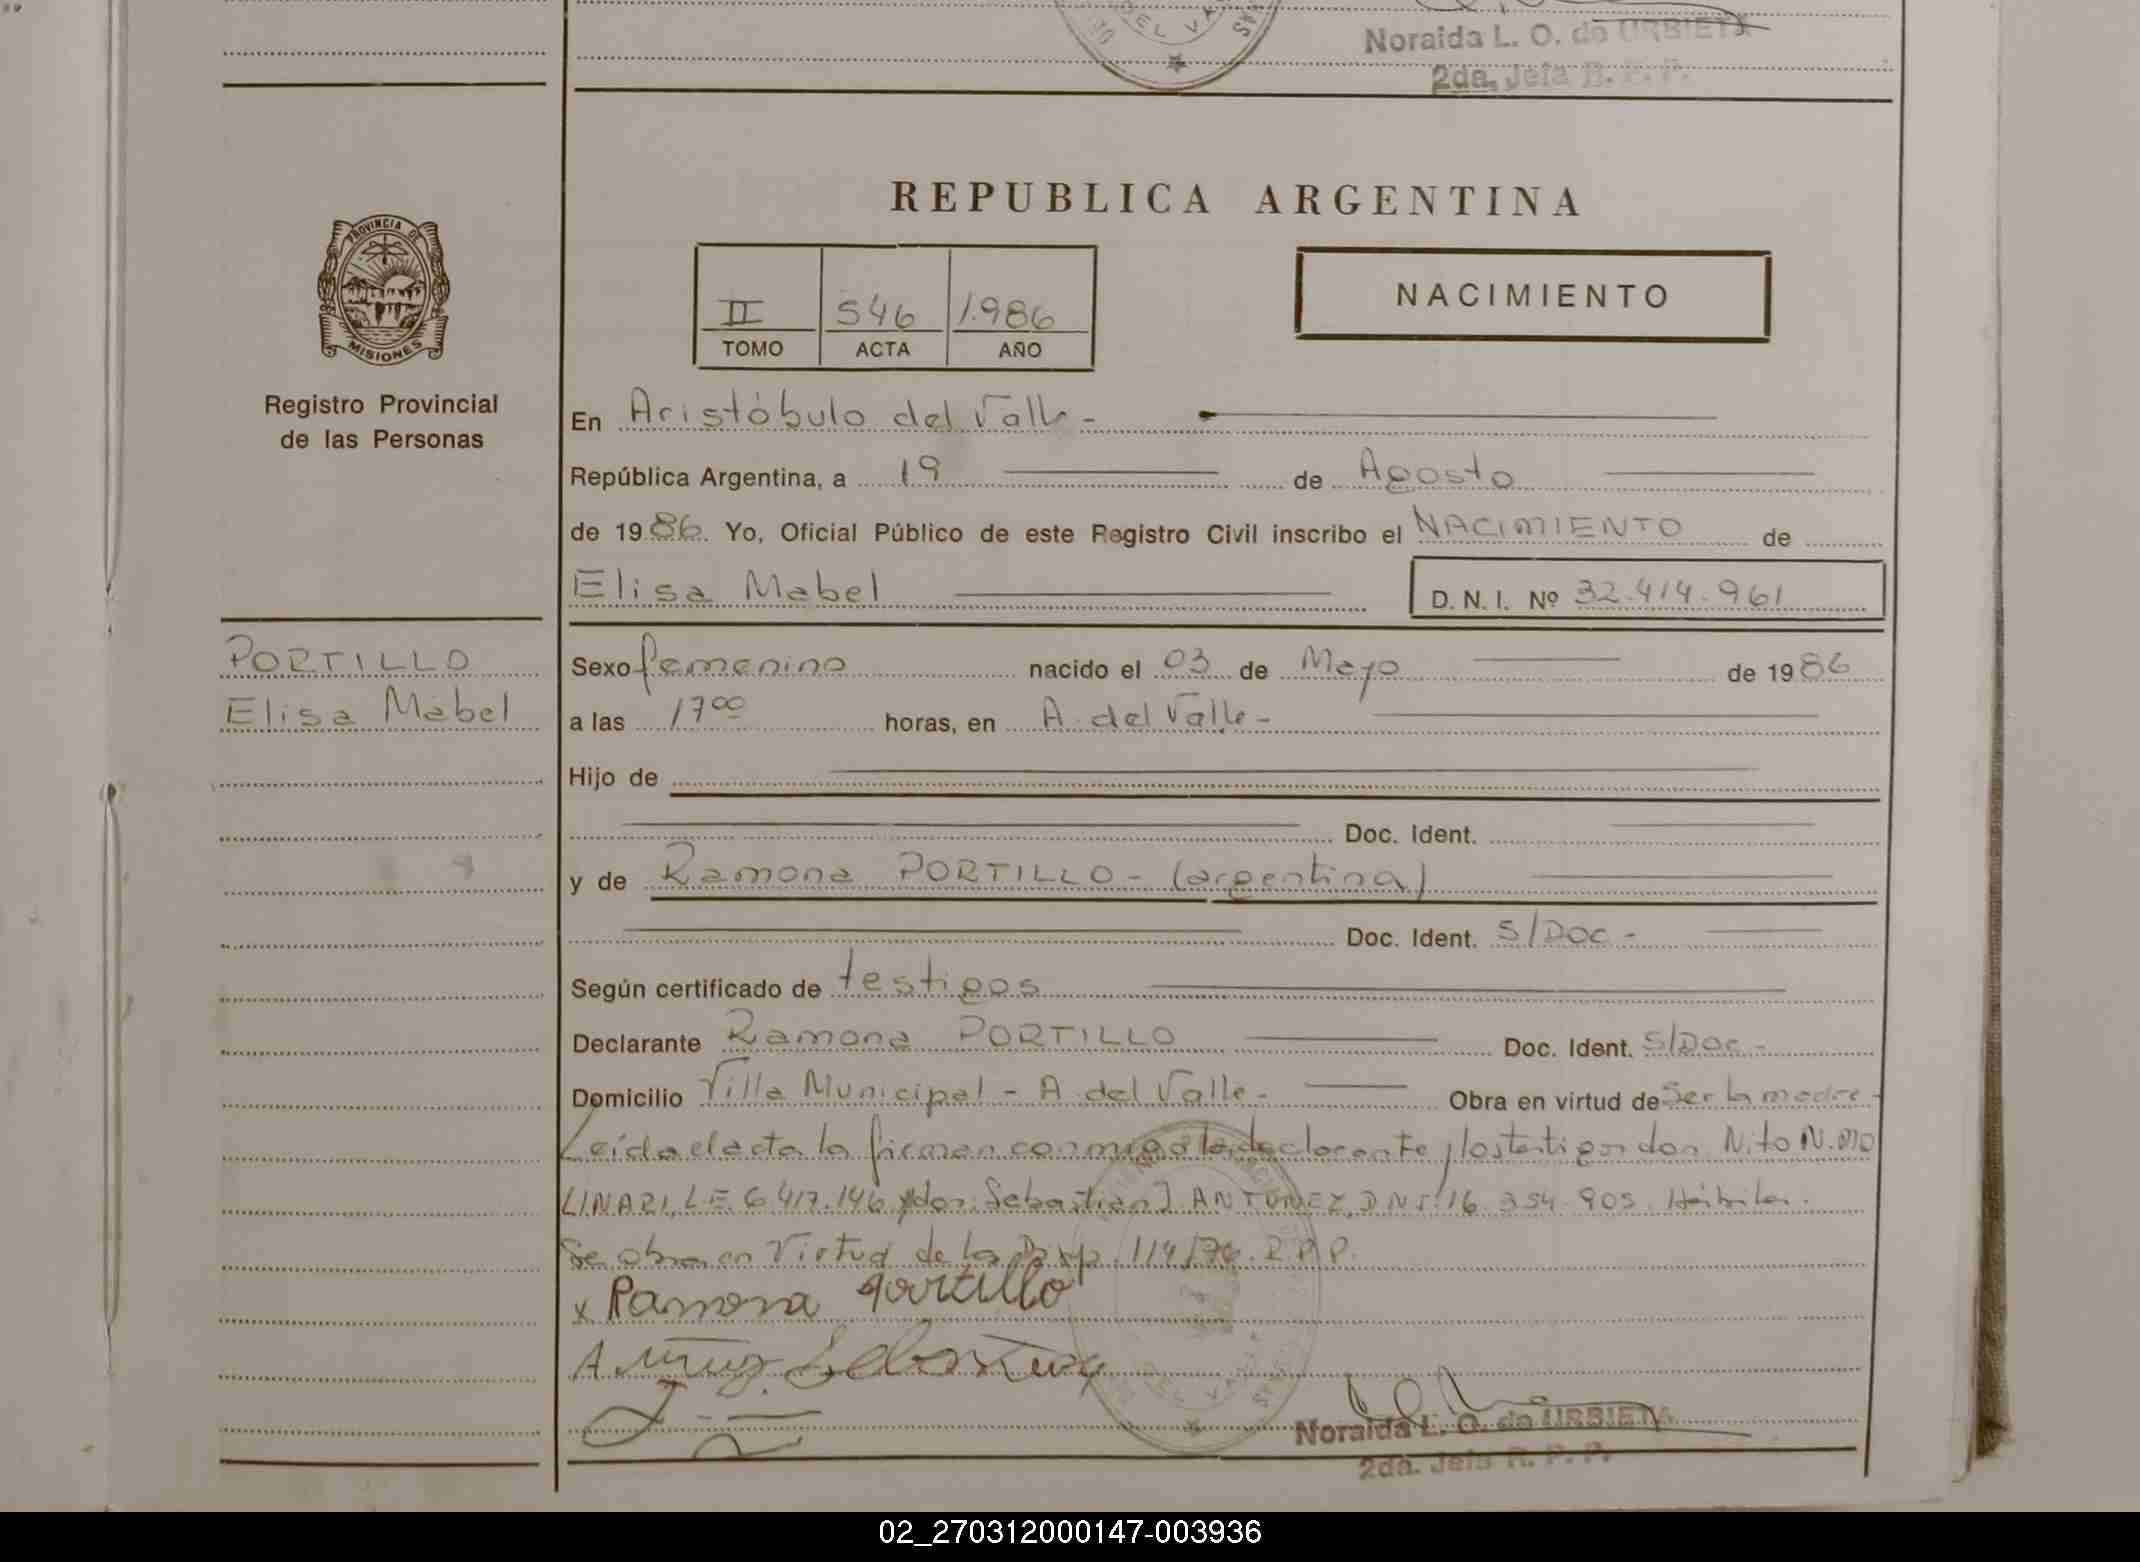 Noraida L. O. de URBIETA
2da. Jefa R. P. P.
PROVINCIA DE
MISIONES
Registro Provincial
de las Personas
REPUBLICA ARGENTINA
II 546 1.986
TOMO ACTA AÑO
NACIMIENTO
En Aristóbulo del Valle -
República Argentina, a 19 de Agosto
de 1986. Yo, Oficial Público de este Registro Civil inscribo el NACIMIENTO de
Elisa Mabel D. N. I. Nº 32.414.961
PORTILLO
Elisa Mabel
Sexo femenino nacido el 03 de Mayo de 1986
a las 17 00 horas, en A. del Valle -
Hijo de
Doc. Ident.
y de Ramona PORTILLO - (argentina)
Doc. Ident. S/Doc -
Según certificado de testigos
Declarante Ramona PORTILLO Doc. Ident. S/Doc -
Domicilio Villa Municipal - A. del Valle - Obra en virtud de Ser la madre -
Leída el acta la firman conmigo la declarante y los testigos don Nito N. MO
LINARI, L.E. 6.417.146 y don Sebastian J. ANTUNEZ, D.N.I. 16.354.905. Hábiles.
Se obra en Virtud de la Disp. 114/76. R.P.P.
x Ramona Portillo
Noraida L. O. de URBIETA
2da. Jefa R. P. P.
02_270312000147-003936